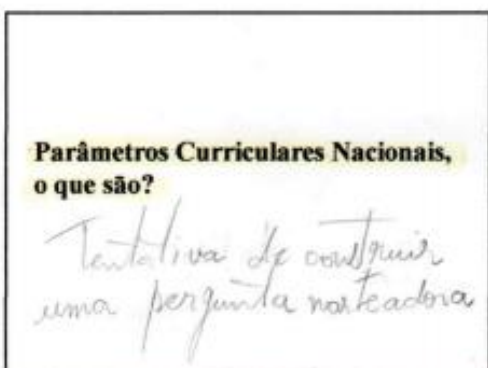 Parâmetros Curriculares Nacionais,
o que são?
Tentativa de construir
uma pergunta norteadora